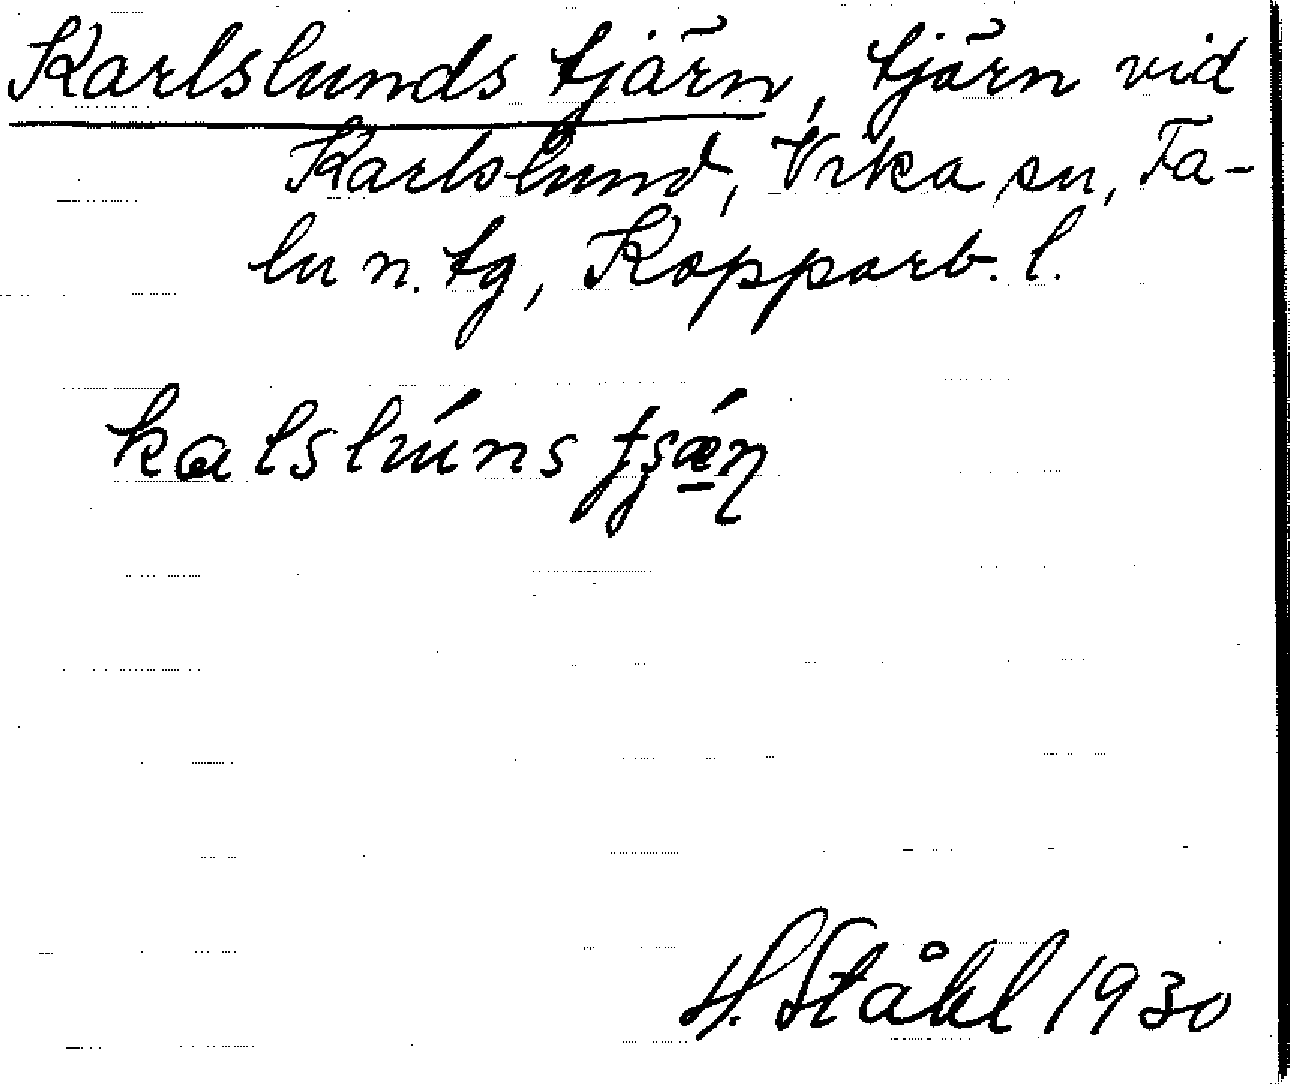 Karlslunds tjärn, tjärn vid
Karlslund, Vika sn, Fa-
lu n. tg, Kopparb. l.
kalslúns
H. Ståhl 1930